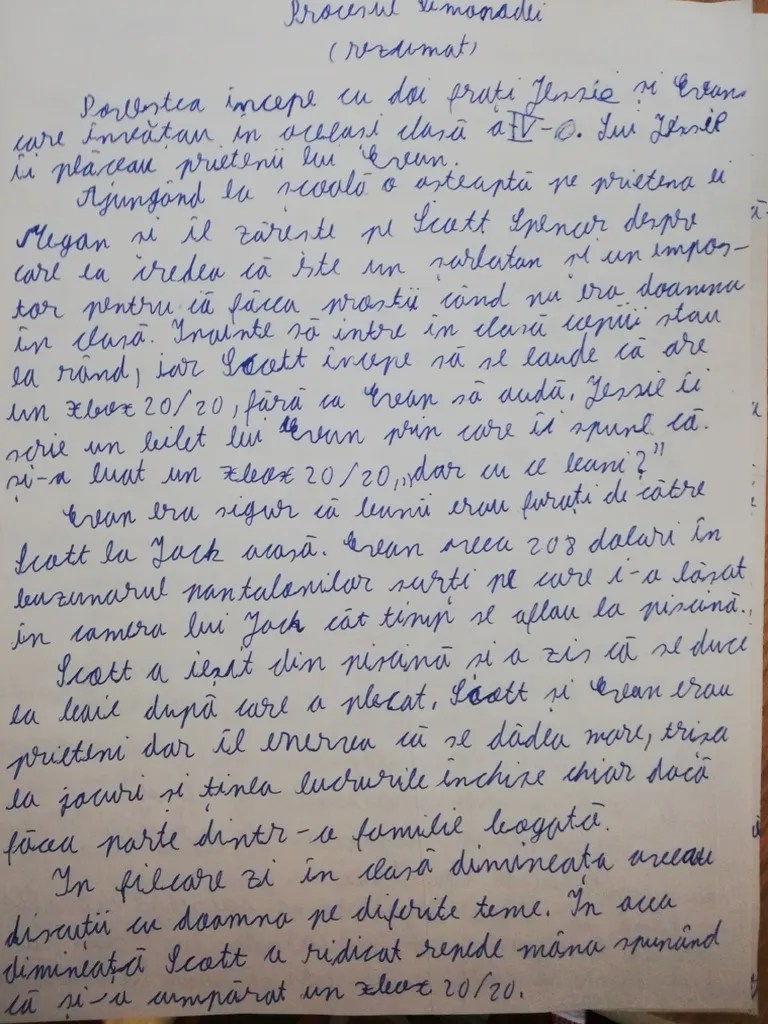 Procesul Limonadei
(rezumat)
Povestea începe cu doi frați Jessie și Evan
care învățau în aceeași clasă a IV-O. Lui Jessie
îi plăceau prietenii lui Evan.
Ajungând la școală o așteaptă pe prietena ei
Megan și îl zărește pe Scott Spencer despre
care ea credea că este un șarlatan și un impos-
tor pentru că făcea prostii când nu era doamna
în clasă. Înainte să intre în clasă copiii stau
la rând, iar Scott începe să se laude că are
un xbox 20/20, fără ca Evan să audă. Jessie îi
scrie un bilet lui Evan prin care îi spune că
și-a luat un xbox 20/20, „dar cu ce bani?"
Evan era sigur că banii erau furați de către
Scott la Jack acasă. Evan avea 208 dolari în
buzunarul pantalonilor scurți pe care i-a lăsat
în camera lui Jack cât timp se aflau la piscină.
Scott a ieșit din piscină și a zis că se duce
la baie după care a plecat. Scott și Evan erau
prieteni dar îl enerva că se dădea mare, trișa
la jocuri și ținea lucrurile închise chiar dacă
făcea parte dintr-o familie bogată.
În fiecare zi în clasă dimineața aveau
discuții cu doamna pe diferite teme. În acea
dimineață Scott a ridicat repede mâna spunând
că și-a cumpărat un xbox 20/20.